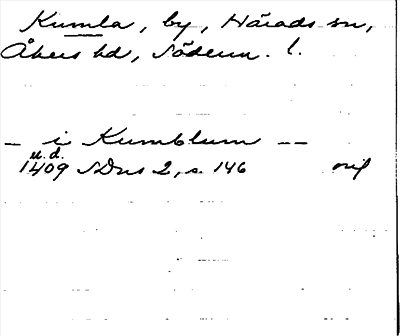 Kumla, by, Härads sn,
Åkers hd, Söderm. l.
– i Kumblum – –
u.d.
1409 SDns 2, s. 146 orig